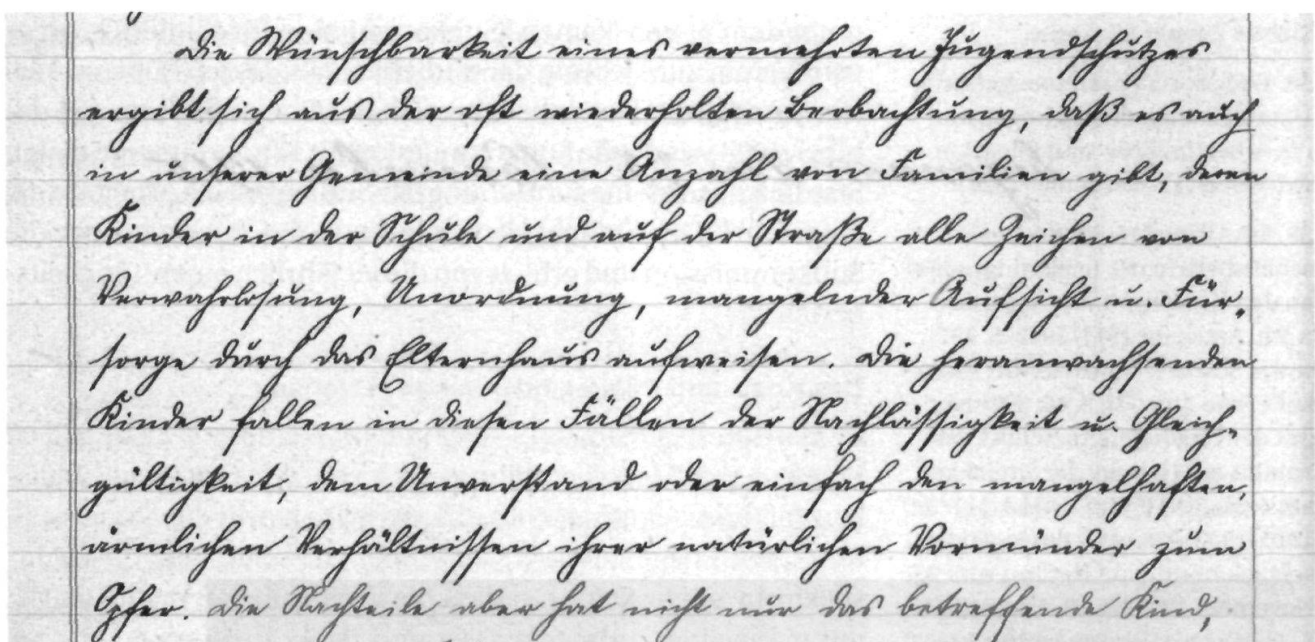 Die Wünschbarkeit eines vermehrten Jugendschutzes
ergibt sich aus der oft wiederholten Beobachtung, daß es auch
in unserer Gemeinde eine Anzahl von Familien gibt, deren
Kinder in der Schule und auf der Straße alle Zeichen von
Verwahrlosung, Unordnung, mangelnder Aufsicht u. Für-
sorge durch das Elternhaus aufweisen. Die heranwachsenden
Kinder fallen in diesen Fällen der Nachlässigkeit u. Gleich-
gültigkeit, dem Unverstand oder einfach den mangelhaften,
ärmlichen Verhältnissen ihrer natürlichen Vormünder zum
Opfer. Die Nachteile aber hat nicht nur das betreffende Kind,